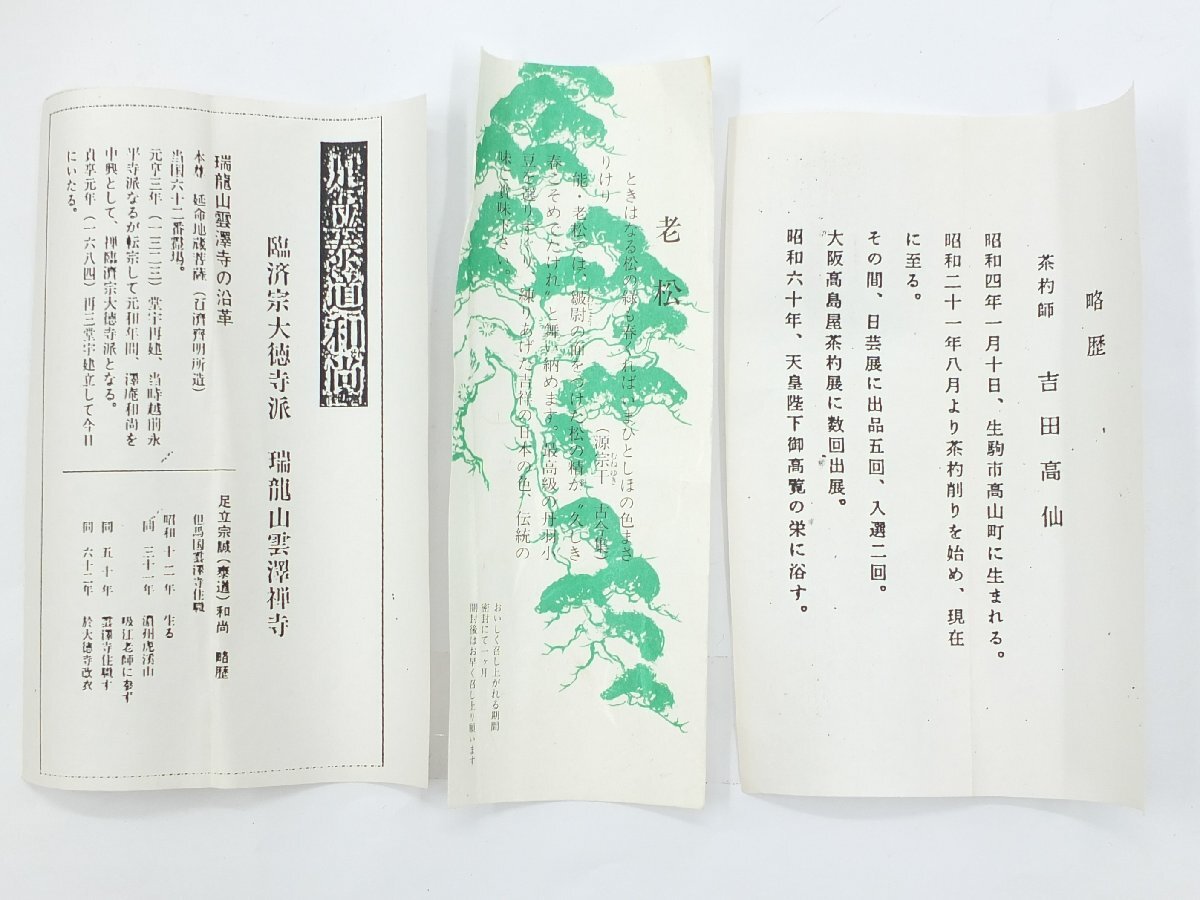 略歴
茶杓師 吉田高仙
昭和四年一月十日、生駒市高山町に生まれる。
昭和二十一年八月より茶杓削りを始め、現在
に至る。
その間、日芸展に出品五回、入選二回。
大阪高島屋茶杓展に数回出展。
昭和六十年、天皇陛下御高覧の栄に浴す。
老松
ときはなる松の緑も春くればいまひとしほの色まさ
りけり (源宗于 古今集)
むねゆき
能・老松では、皺尉の面をつけた松の精が〝久しき
春こそめでたけれ〟と舞い納めます。最高級の丹波小
豆を選り練りあげた吉祥の日本の色、伝統の
味ご賞味下さい。
おいしく召し上がれる期間
密封にて一ヶ月
開封後はお早く召し上り願います
足立泰道和尚
臨済宗大徳寺派 瑞龍山雲澤禅寺
瑞龍山雲澤寺の沿革
本尊 延命地蔵菩薩(石濟齊明所造)
当国六十二番霊場。
元亨三年(一三二三)堂宇再建、当時越前永
平寺派なるが転宗して元和年間、澤庵和尚を
中興として、禅臨濟宗大徳寺派となる。
貞享元年(一六八四)再三堂宇建立して今日
にいたる。
足立宗誠(泰道)和尚 略歴
但馬国雲澤寺住職
昭和十二年 生る
同 三十一年 濃州虎渓山
吸江老師に参ず
同 五十年 雲澤寺住職す
同 六十二年 於大徳寺改衣